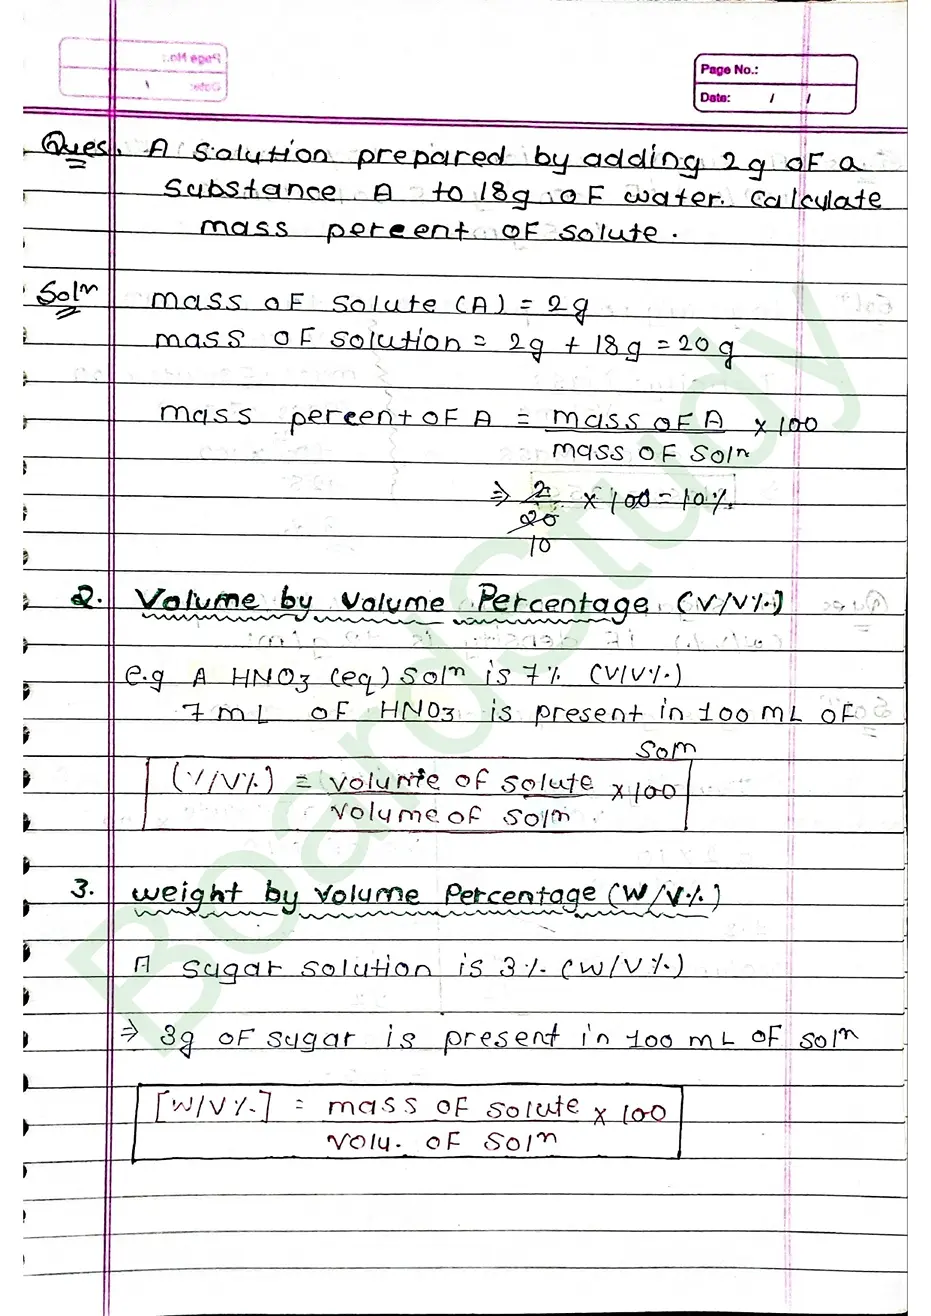 Page No.:
Date: / /
Ques. A solution prepared by adding 2g of a
substance A to 18g of water. Calculate
mass percent of solute.
Solⁿ mass of solute (A) = 2g
mass of solution = 2g + 18g = 20g
mass percent of A = mass of A × 100
mass of Solⁿ
⇒ 2 × 100 = 10%
20
10
2. Volume by Volume Percentage (V/V%)
e.g A HNO3 (eq) Solⁿ is 7% (V/V%)
7 mL of HNO3 is present in 100 mL of
Solⁿ
(V/V%) = volume of solute × 100
volume of solⁿ
3. weight by volume Percentage (W/V%)
A sugar solution is 3% (W/V%)
⇒ 3g of sugar is present in 100 mL of solⁿ
[W/V%] = mass of solute × 100
volu. of solⁿ
BoardStudy